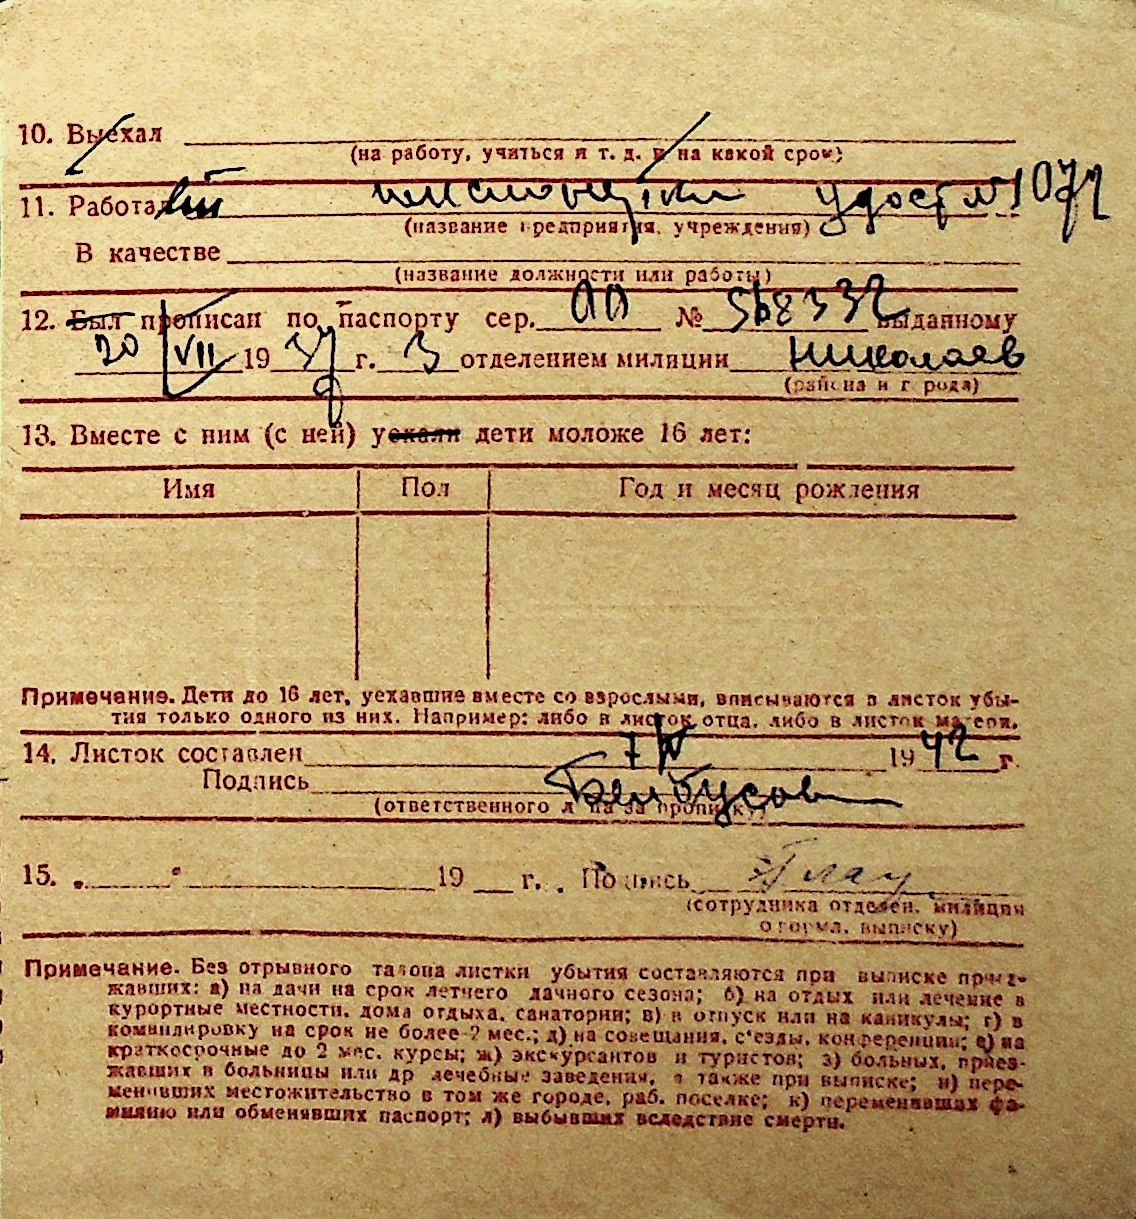 10. Выехал
(на работу, учиться и т. д. и на какой срок)
11. Работал удост № 1072
(название предприятия, учреждения)
В качестве
(название должности или работы)
12. Был прописан по паспорту сер. № 568332 выданному
20 VII 1939 г. 3 отделением милиции Николаев
(района и города)
13. Вместе с ним (с ней) уехали дети моложе 16 лет:
Имя Пол Год и месяц рождения
Примечание. Дети до 16 лет, уехавшие вместе со взрослыми, вписываются в листок убы-
тия только одного из них. Например: либо в листок отца, либо в листок матери.
14. Листок составлен 7/IV 1942 г.
Подпись
(ответственного лица за прописку)
15. „ " 19 г. Подпись
(сотрудника отделен. милиции
оформл. выписку)
Примечание. Без отрывного талона листки убытия составляются при выписке приез-
жавших: а) на дачи на срок летнего дачного сезона; б) на отдых или лечение в
курортные местности, дома отдыха, санатории; в) в отпуск или на каникулы; г) в
командировку на срок не более 2 мес.; д) на совещания, с'езды, конференции; е) на
краткосрочные до 2 мес. курсы; ж) экскурсантов и туристов; з) больных, приез-
жавших в больницы или др лечебные заведения, а также при выписке; и) пере-
менивших местожительство в том же городе, раб. поселке; к) переменивших фа-
милию или обменявших паспорт; л) выбывших вследствие смерти.